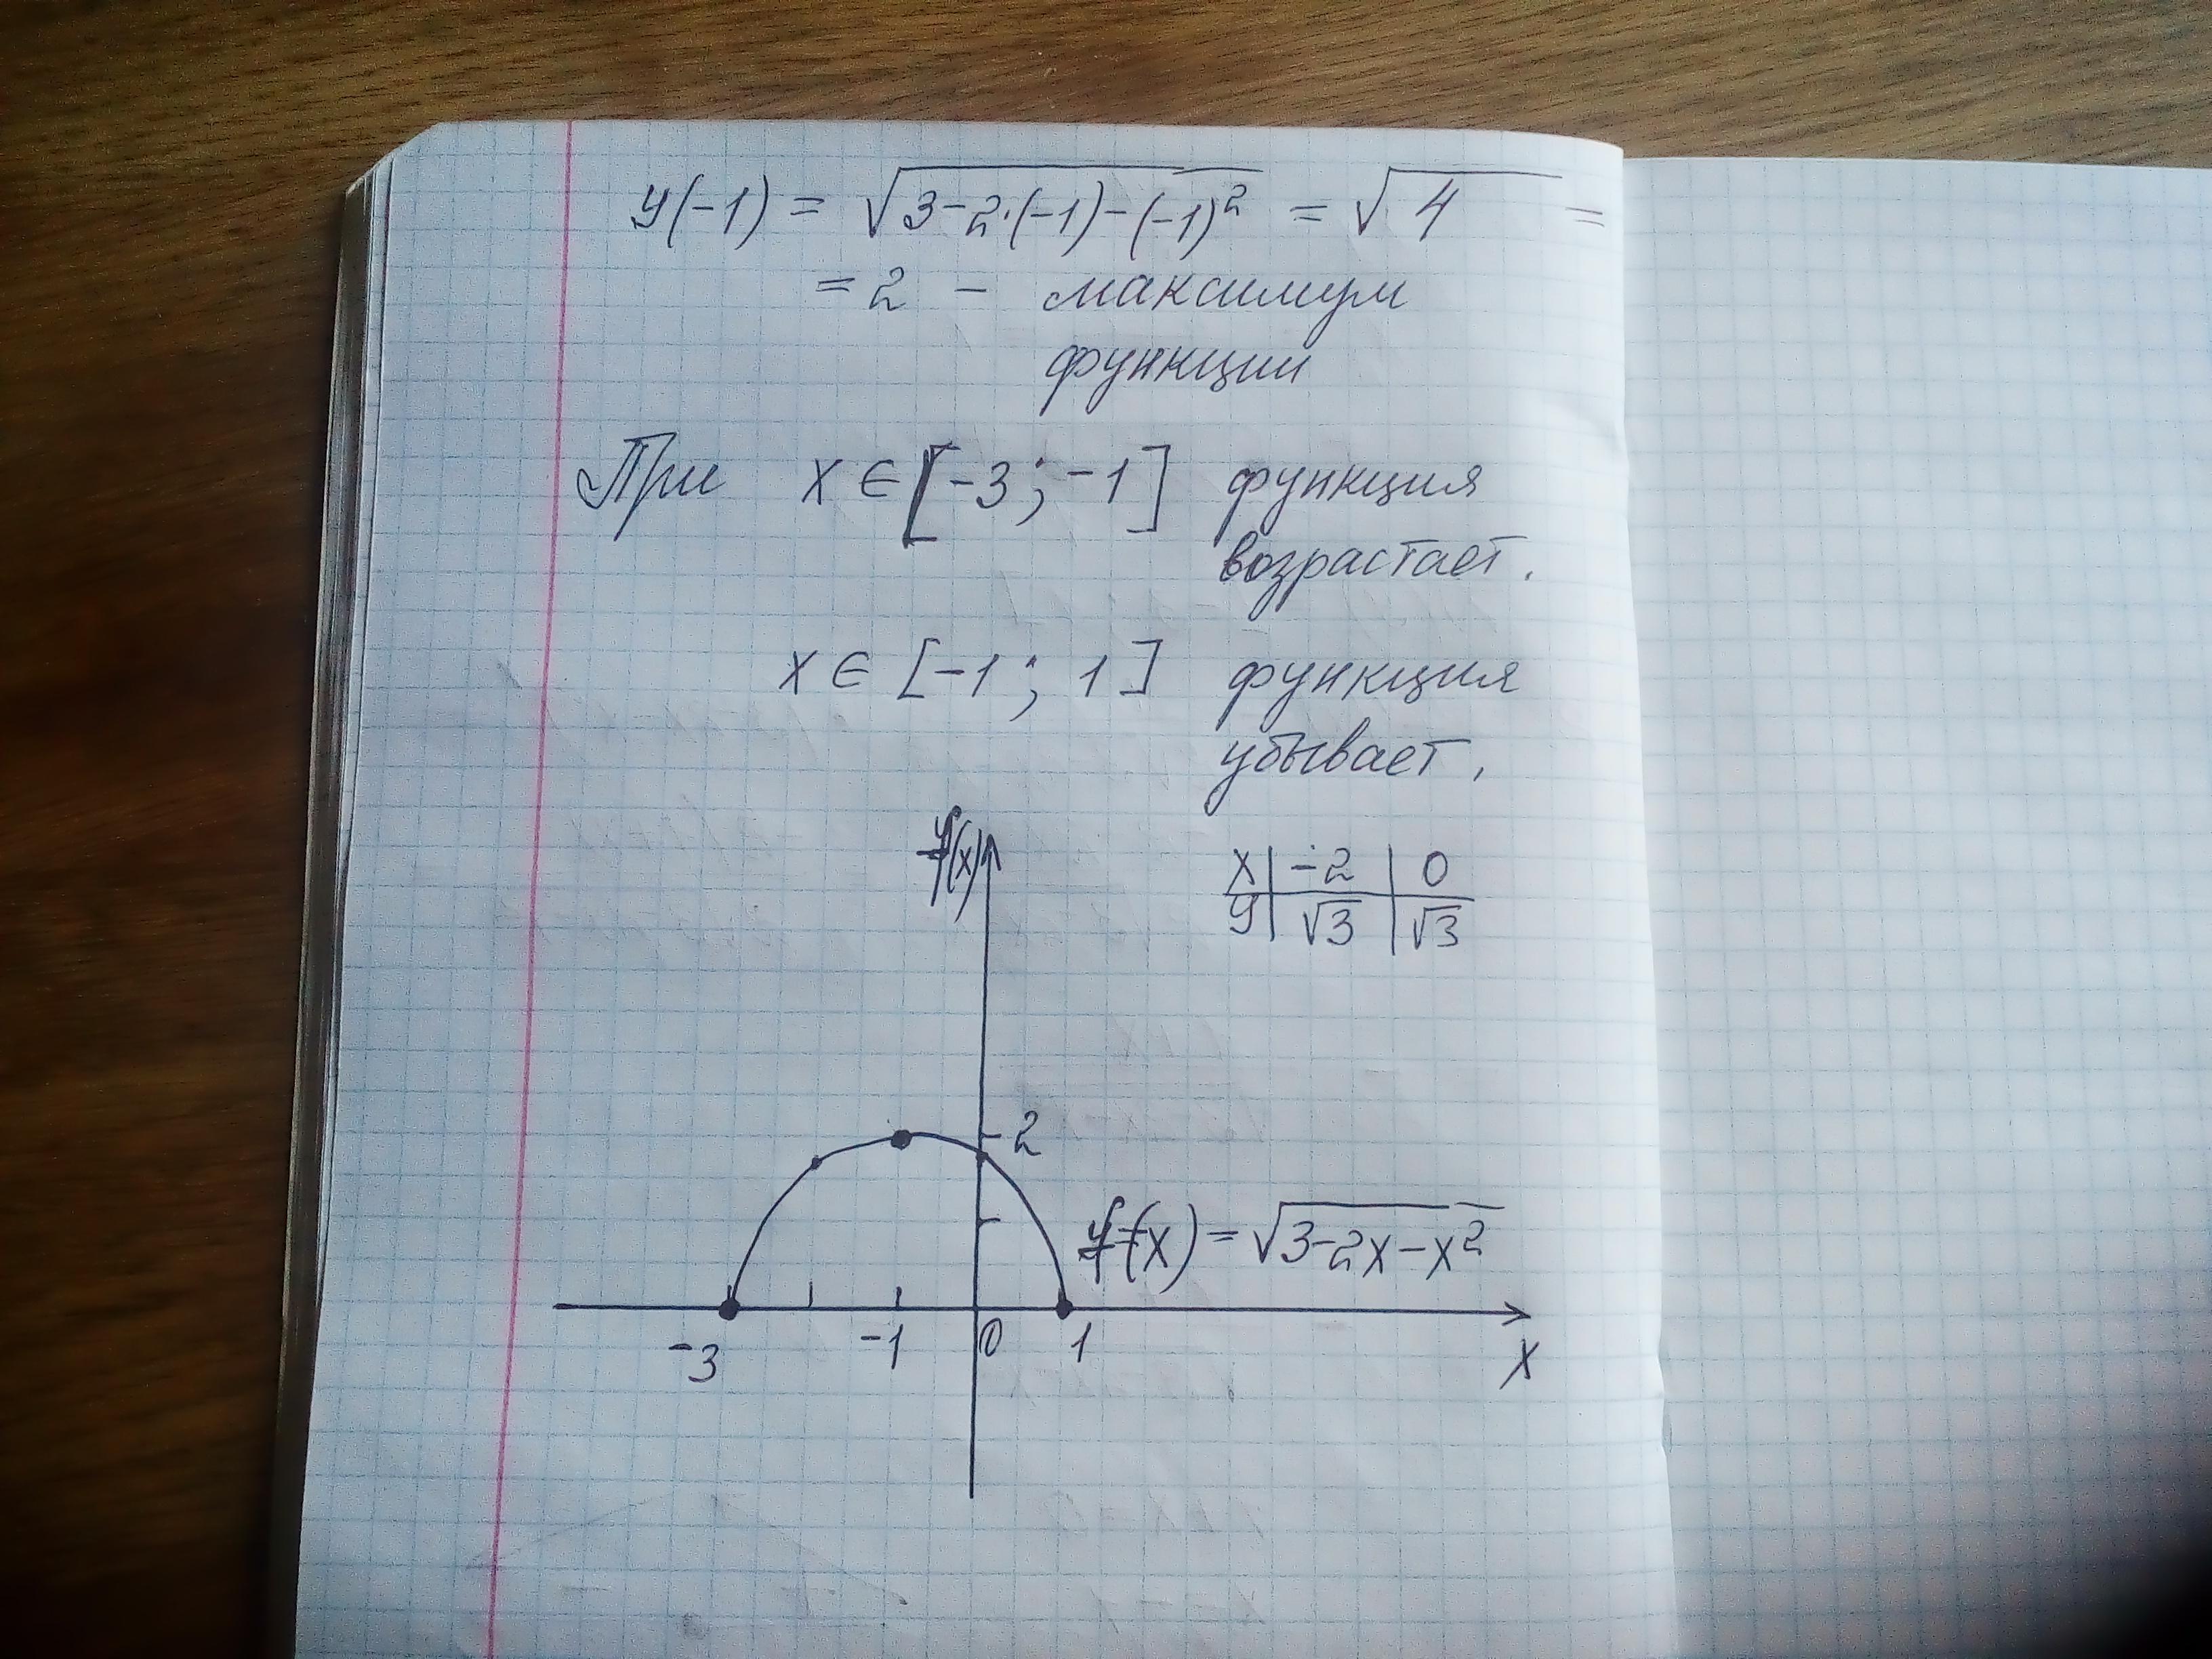 y(-1) = √(3-2·(-1)-(-1)²) = √4 =
= 2 - максимум
функции
При x ∈ [-3; -1] функция
возрастает.
x ∈ [-1; 1] функция
убывает.
f(x)
x | -2 | 0
y | √3 | √3
2
f(x) = √(3-2x-x²)
-3 -1 0 1
x